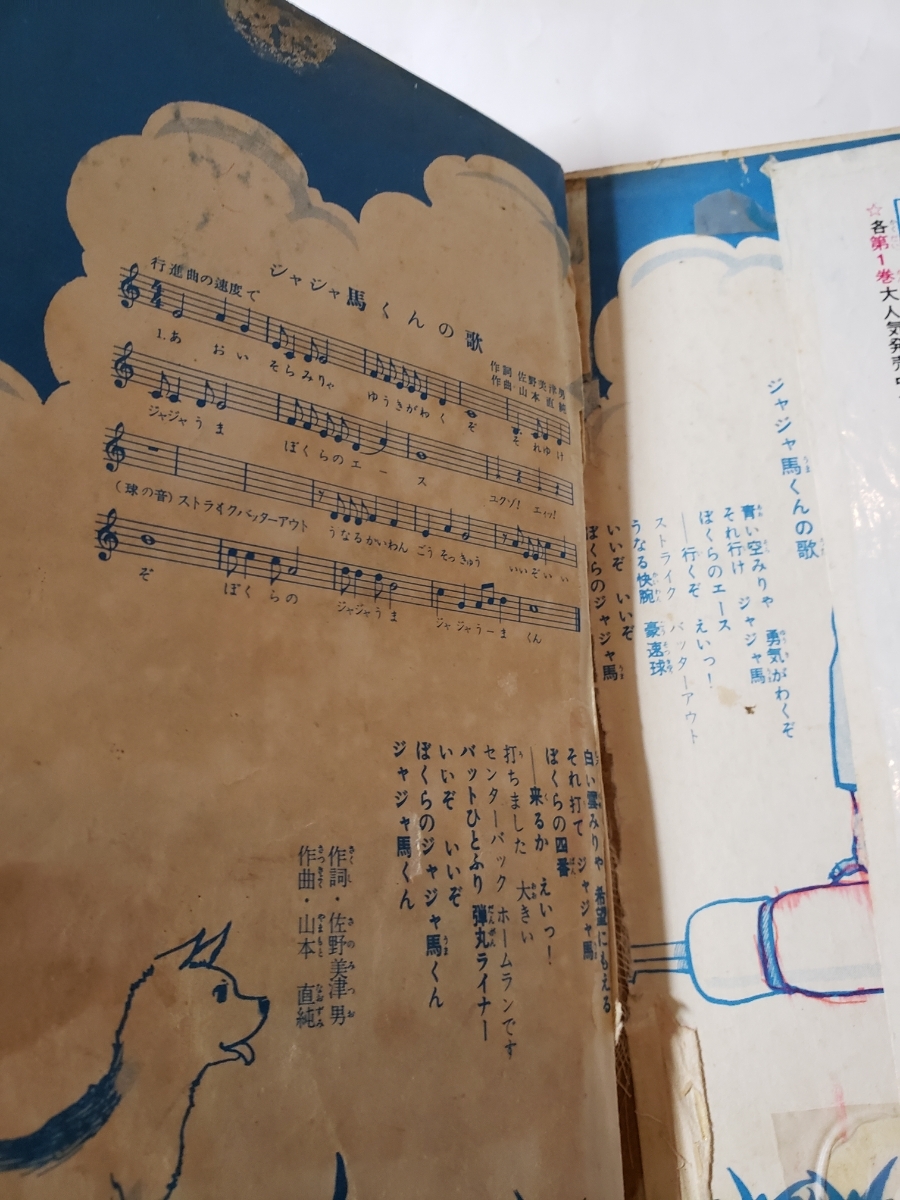 ジャジャ馬くんの歌
行進曲の速度で
作詞 佐野美津男
作曲 山本直純
1.あ おい そらみりゃ ゆうきがわくぞ そ れゆけ
ジャジャうま ぼくらのエース ユクゾ! エィッ!
(球の音)ストライクバッターアウト うなるかいわん ごうそっきゅう いいぞいい
ぞ ぼくらの ジャジャうま ジャジャうーま くん
☆各第1巻大人気発売中
ジャジャ馬くんの歌
青い空みりゃ 勇気がわくぞ
それ行け ジャジャ馬
ぼくらのエース
――行くぞ えいっ!
ストライク バッターアウト
うなる快腕 豪速球
いいぞ いいぞ
ぼくらのジャジャ馬
白い雲みりゃ 希望にもえる
それ打て ジャジャ馬
ぼくらの四番
――来るか えいっ!
打ちました 大きい
センターバック ホームランです
バットひとふり 弾丸ライナー
いいぞ いいぞ
ぼくらのジャジャ馬くん
ジャジャ馬くん
作詞・佐野美津男
作曲・山本 直純